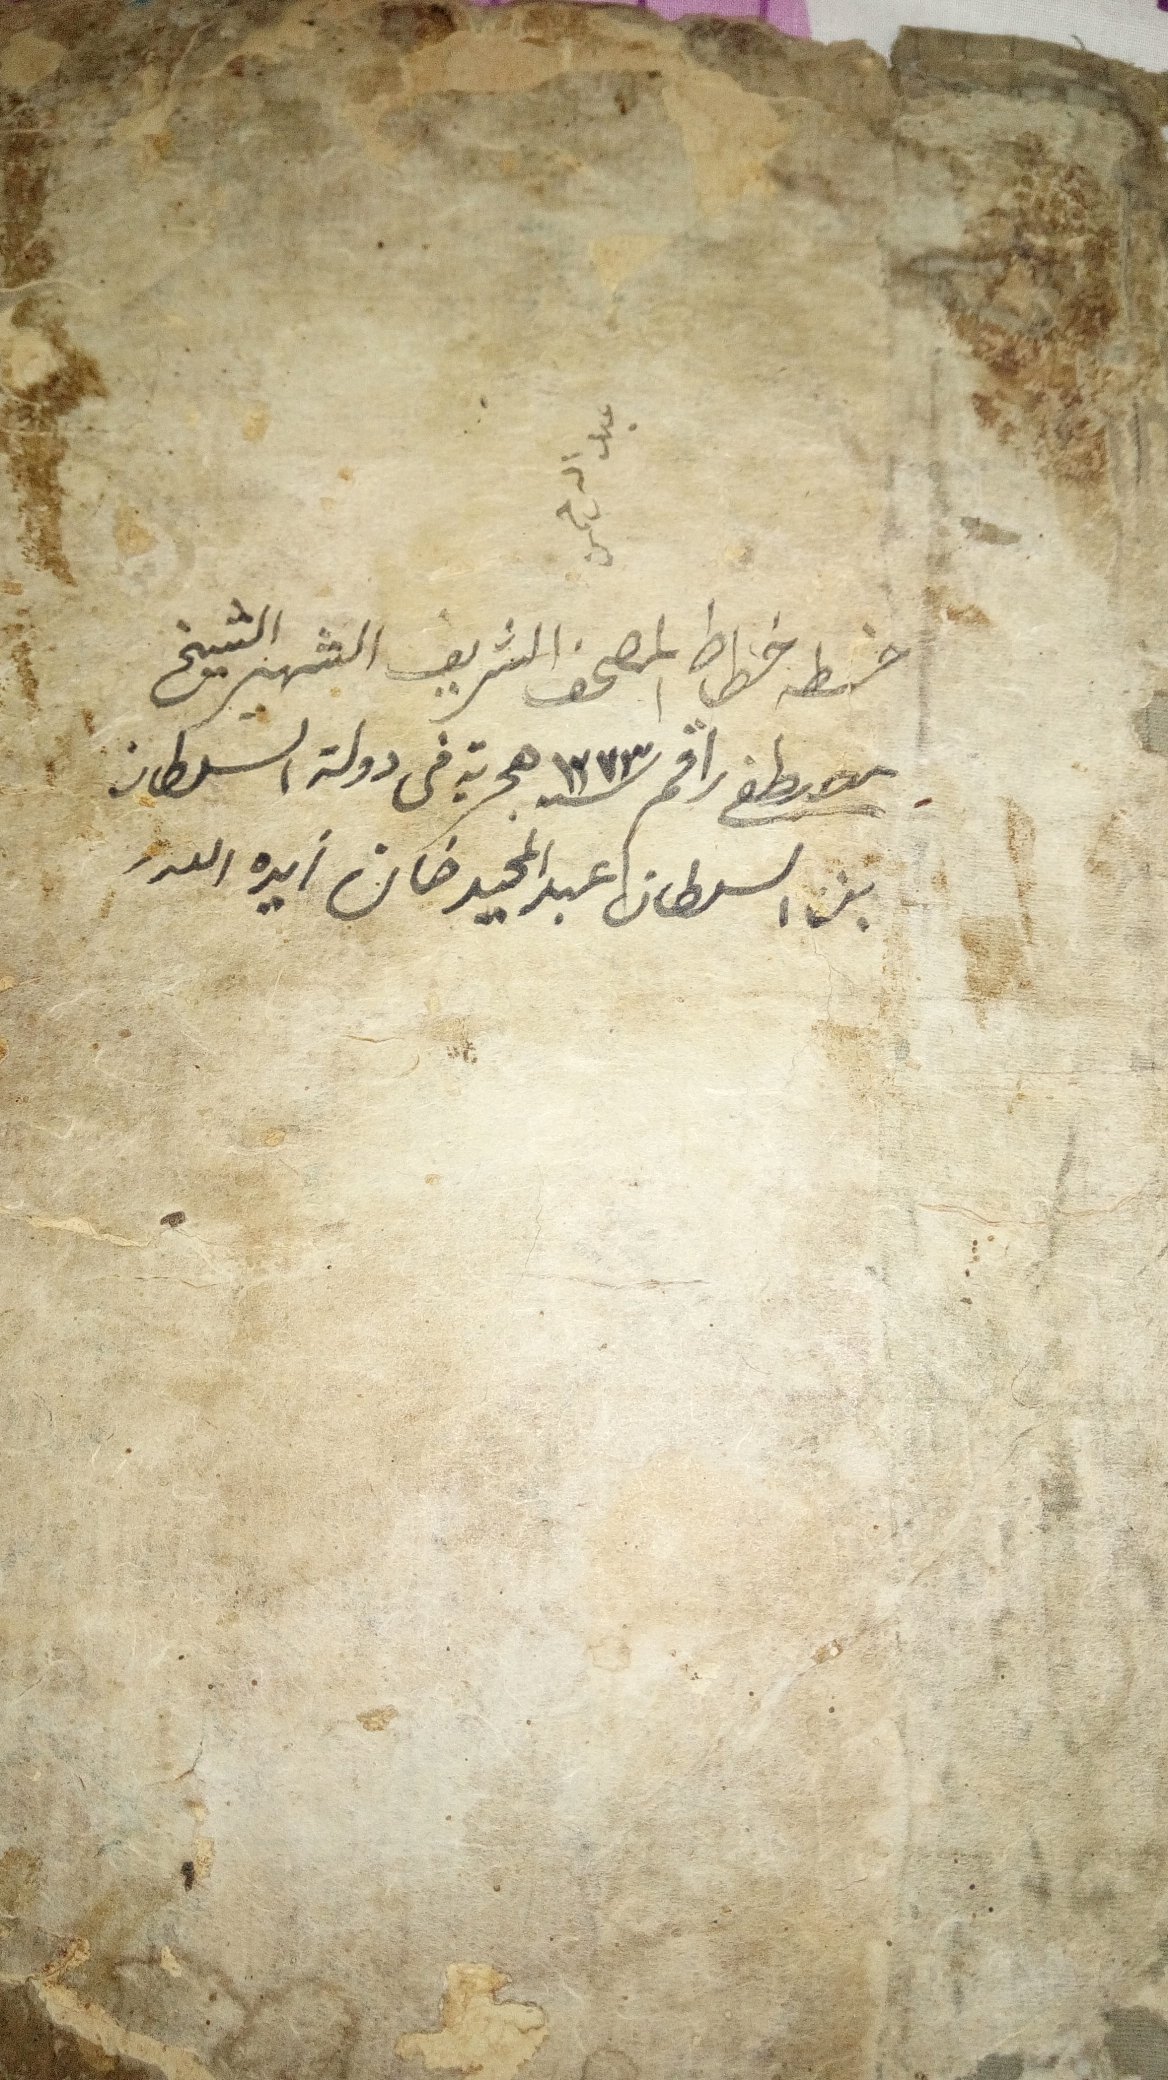 خطه خطاط المصحف الشريف الشهير الشيخ
مصطفى راقم سنة ١٢٧٣ هجرية في دولة السلطان
بن السلطان عبد المجيد خان أيده الله